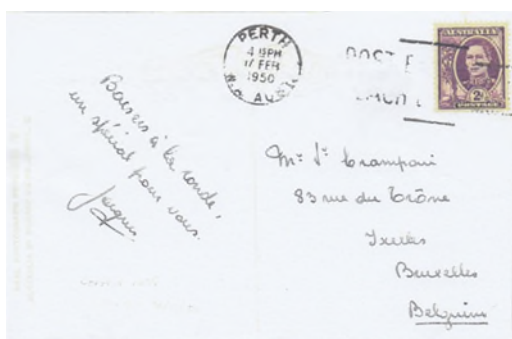 PERTH
4 PM
17 FEB
1950
W.A. AUST.
AUSTRALIA
2D
POSTAGE
Baisers à la ronde,
un spécial pour vous.
Jacques
83 rue du Trône
Ixelles
Bruxelles
Belgium